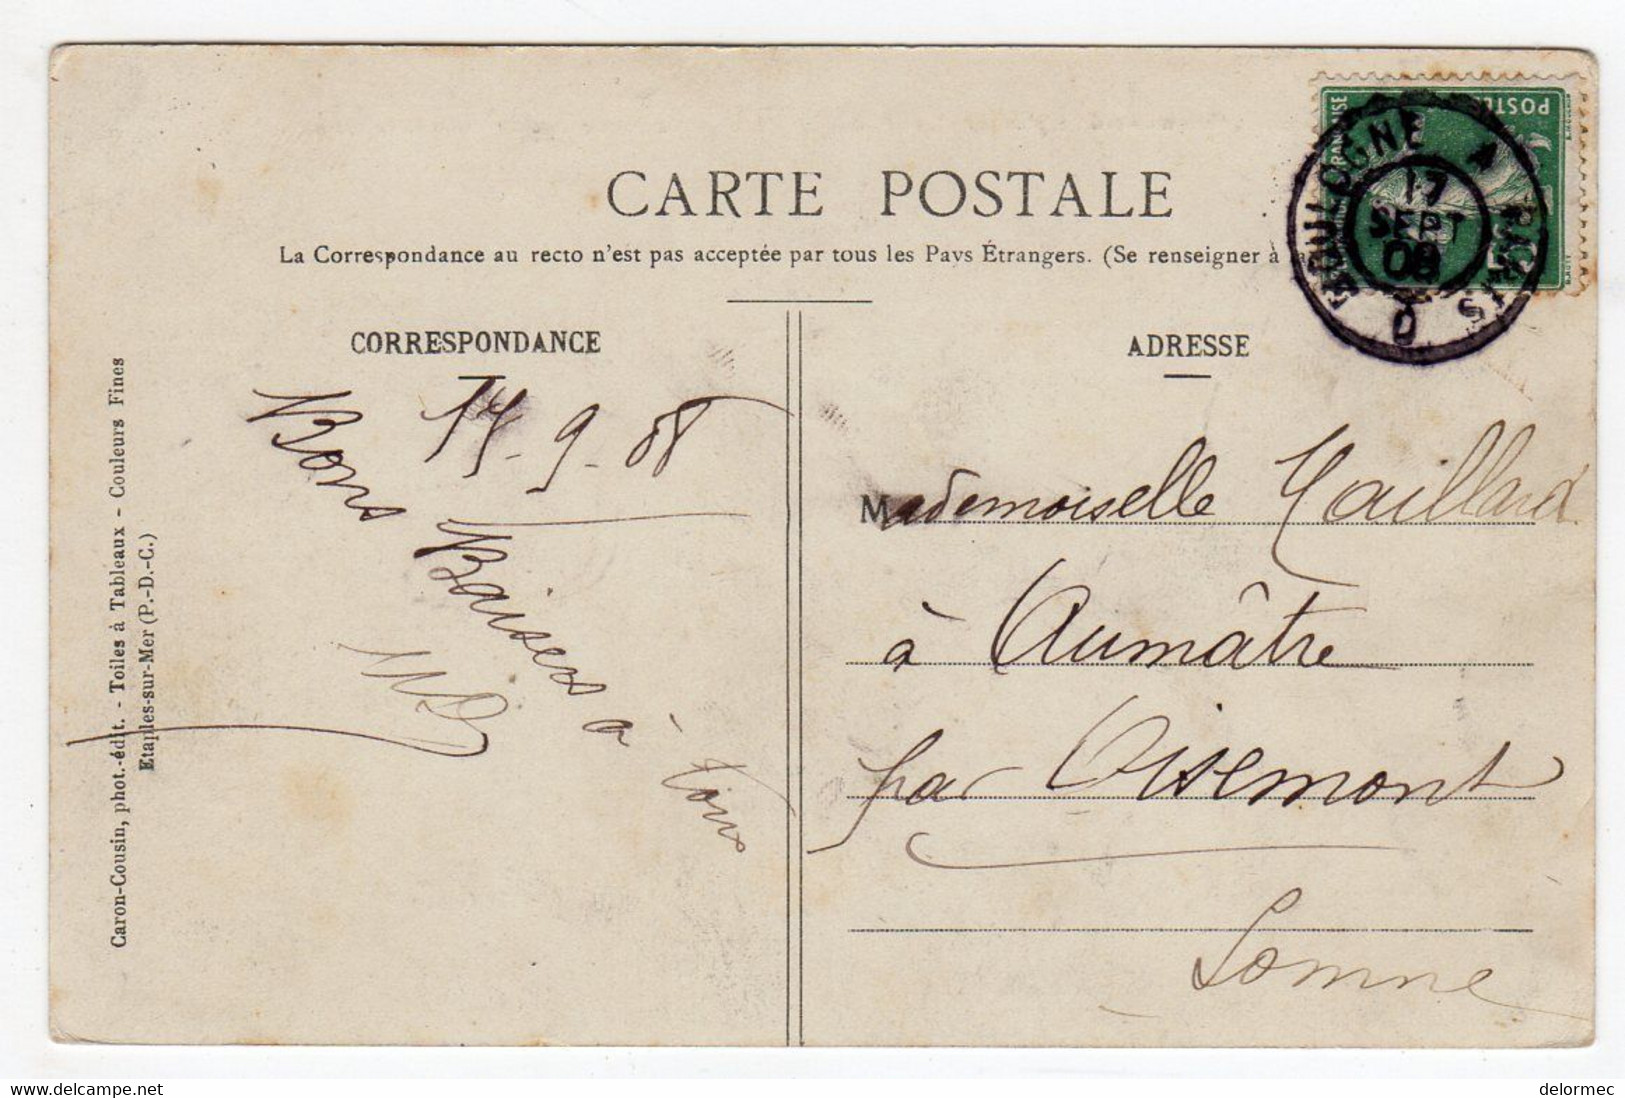 CARTE POSTALE
La Correspondance au recto n'est pas acceptée par tous les Pays Étrangers. (Se renseigner à la
CORRESPONDANCE
17-9-08
Bons Baisers à
tous
ADRESSE
Mademoiselle Maillard
à Aumâtre
par Oisemont
Somme
Caron-Cousin, phot.-édit. - Toiles à Tableaux - Couleurs Fines
Etaples-sur-Mer (P.-D.-C.)
BOULOGNE A PARIS
17
SEPT
08
POSTES
FRANÇAISE
delcampe.net
delormec